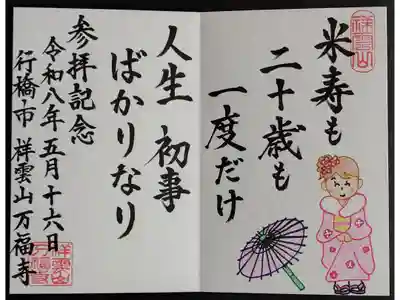 米寿も
二十歳も
一度だけ
人生 初事
ばかりなり
参拝記念
令和八年五月十六日
行橋市 祥雲山万福寺
祥雲山